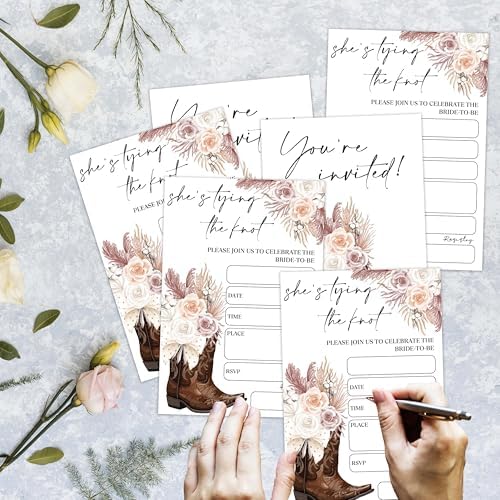 she's tying
the knot
PLEASE JOIN US TO CELEBRATE THE
BRIDE-TO-BE
Registry
You're
invited!
You're
invited!
she's tying
the knot
PLEASE
she's tying
the knot
PLEASE JOIN US TO CELEBRATE THE
BRIDE-TO-BE
DATE
TIME
PLACE
RSVP
she's tying
the knot
PLEASE JOIN US TO CELEBRATE THE
BRIDE-TO-BE
DATE
TIME
PLACE
RSVP